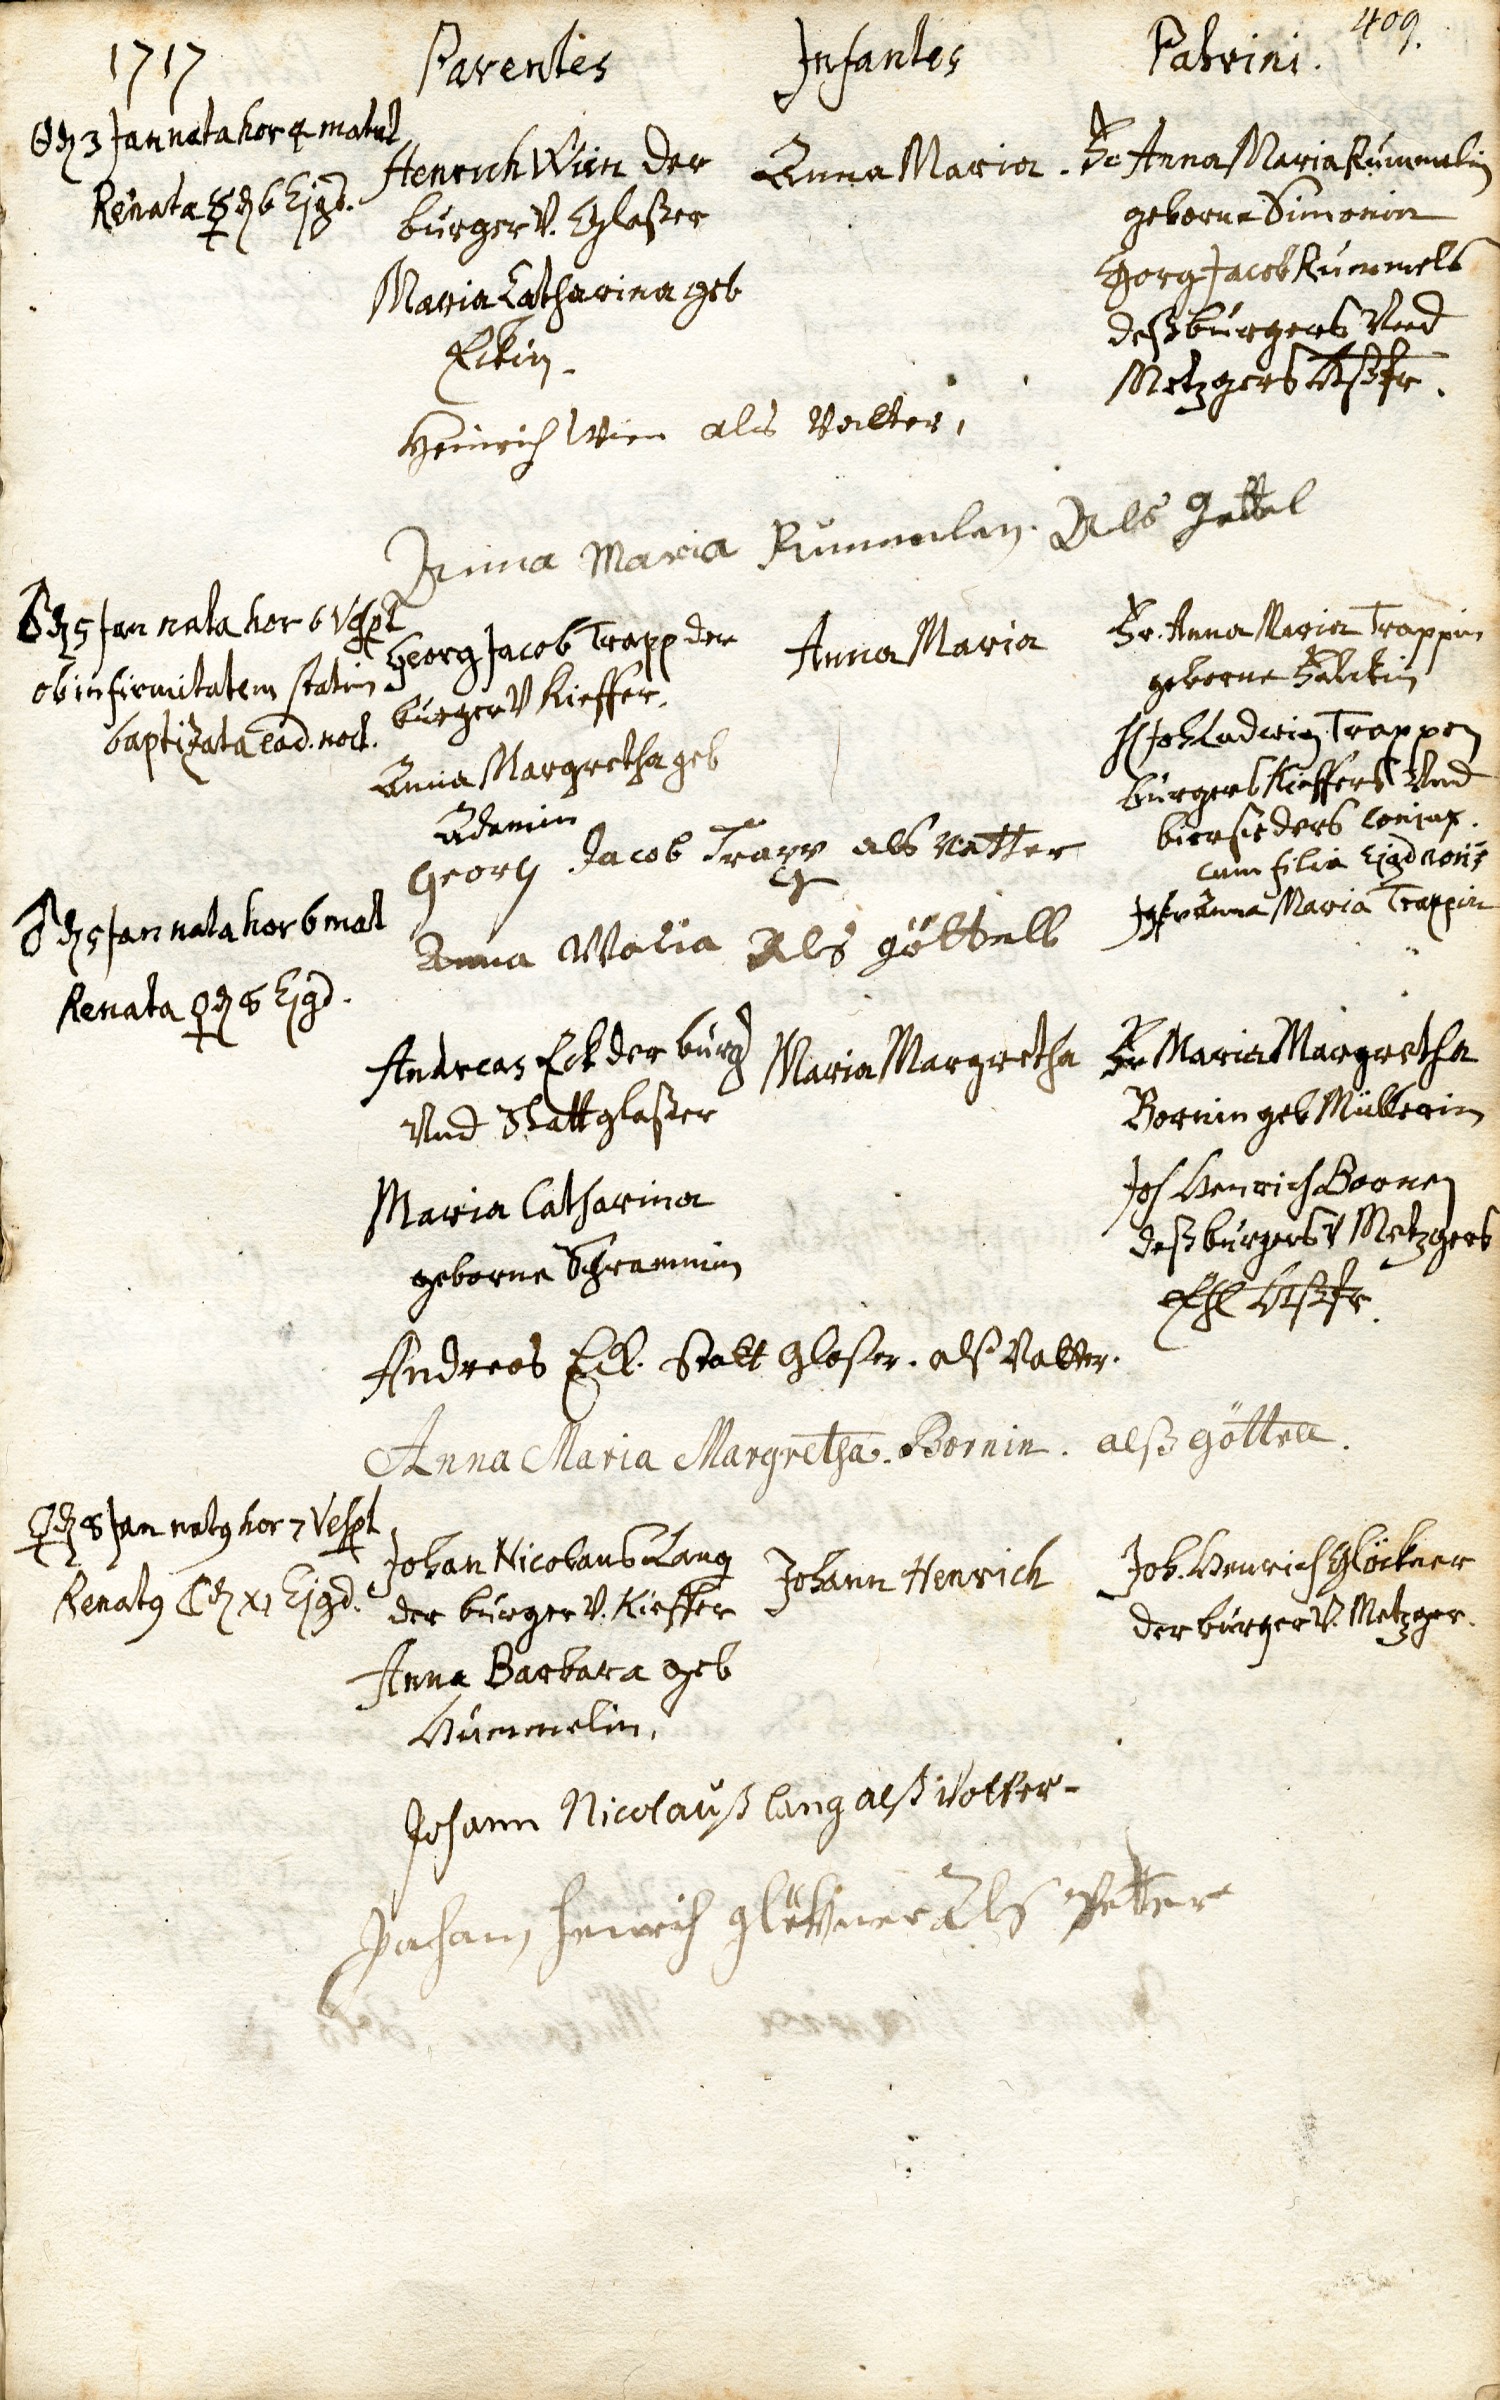 409.
1717 Parentes Infantes Patrini.
☉ dħ 3 Jan nata hor 4 matut
Renata ☿ dħ 6 Ejgd.
Henrich Wien der
burger V. Glaßer
Maria Catharina geb
Eckin.
Anna Maria.
Fr Anna Maria Rummelin
geborne Simonin
Georg Jacob Rummels
deß burgers Und
Metzgers Haußfr.
Heinrich Wien als Vatter,
Anna Maria Rummelen Als Gettel
♂ dħ 5 Jan nata hor 6 Vespt
ob infirmitatem statim
baptizata ead. noct.
Georg Jacob Trapp der
burger V Kieffer.
Anna Margretha geb
Adamin
Anna Maria
Fr. Anna Maria Trappin
geborne
H Joh Ludwig Trappen
burgers Kieffers Und
biersieders conjux.
cum filia Ejgd noīs
Jgfr Anna Maria Trappin
Georg Jacob Trapp als Vatter
Anna Maria Als göttell
♂ dħ 5 Jan nata hor 6 mat
Renata ♀ dħ 8 Ejgd.
Andreas Eck der burg
Und Statt glaßer
Maria Catharina
geborne Schrammin
Maria Margretha
Fr Maria Margretha
Bornin geb Müllerin
Joh Henrich Bornen
deß burgers V Metzgers
Ehl Haußfr.
Andreas Eck. Statt Glaser. alß Vatter.
Anna Maria Margretha. Bornin. alß göttell.
♀ dħ 8 Jan natq hor 7 Vespt
Renatq ☾ dħ XI Ejgd.
Johan Nicolaus Lang
der burger V. Kieffer
Anna Barbara geb
Hummelin.
Johann Henrich
Joh. Henrich Glöckner
der burger V. Metzger.
Johann Nicolauß lang alß Vatter-
Johann Henrich glöckner Als Petter